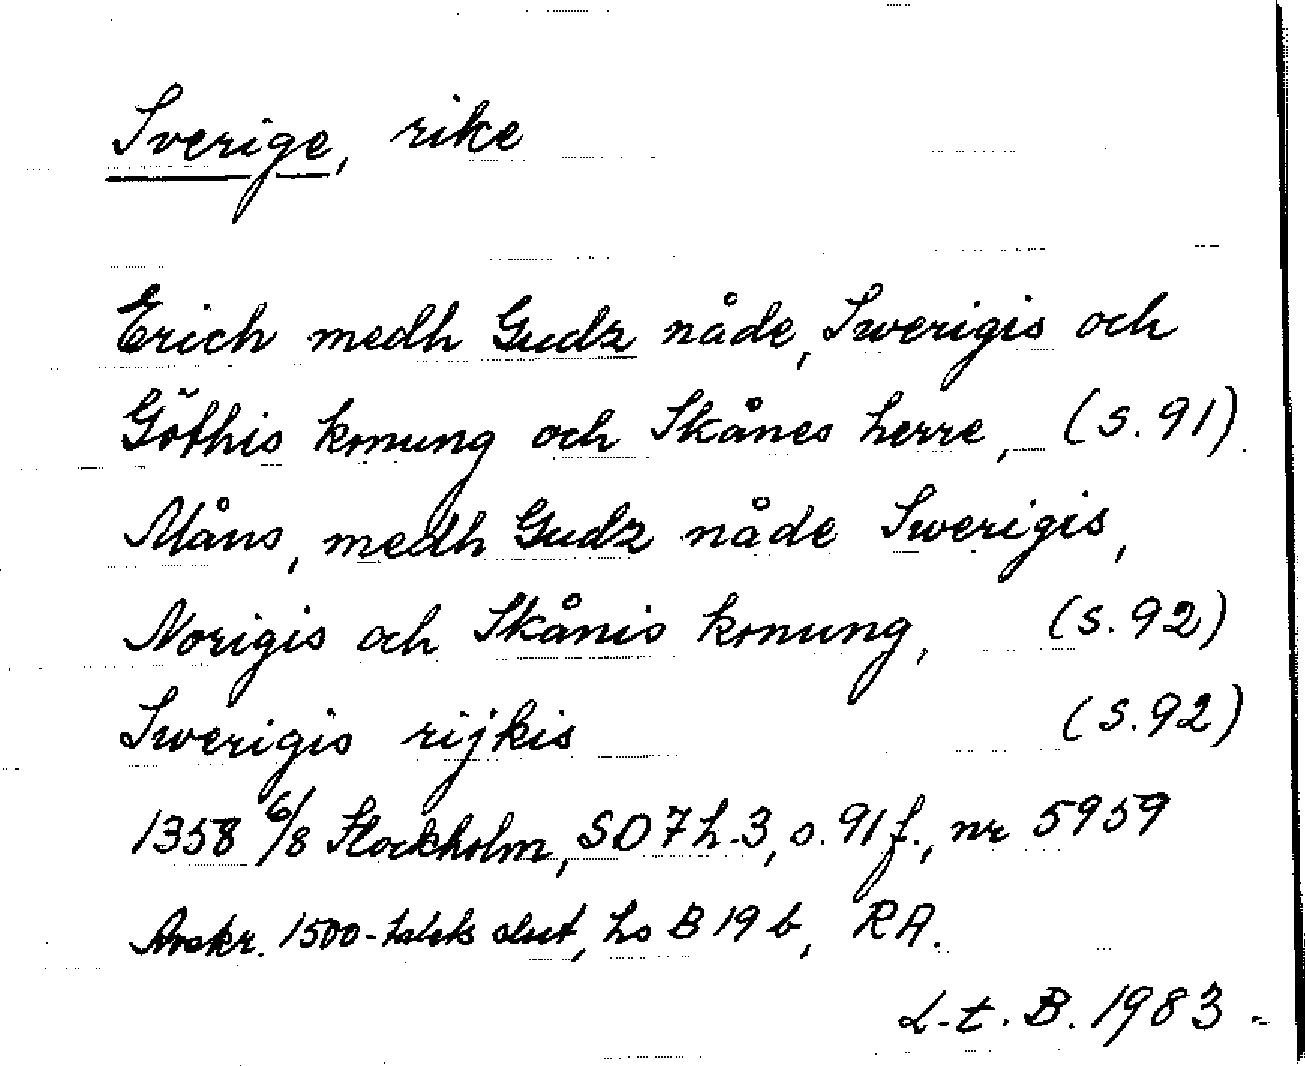 Sverige, rike
Erich medh Gudz nåde, Swerigis och
Göthis konung och Skånes herre, (s. 91)
Måns, medh Gudz nåde Swerigis,
Norigis och Skånis konung, (s. 92)
Swerigis rijkis (s. 92)
1358 6/8 Stockholm, SD 7 h. 3, s. 91 f., nr 5959
Avskr. 1500-talets slut, hs B 19 b, RA.
L-t. B. 1983